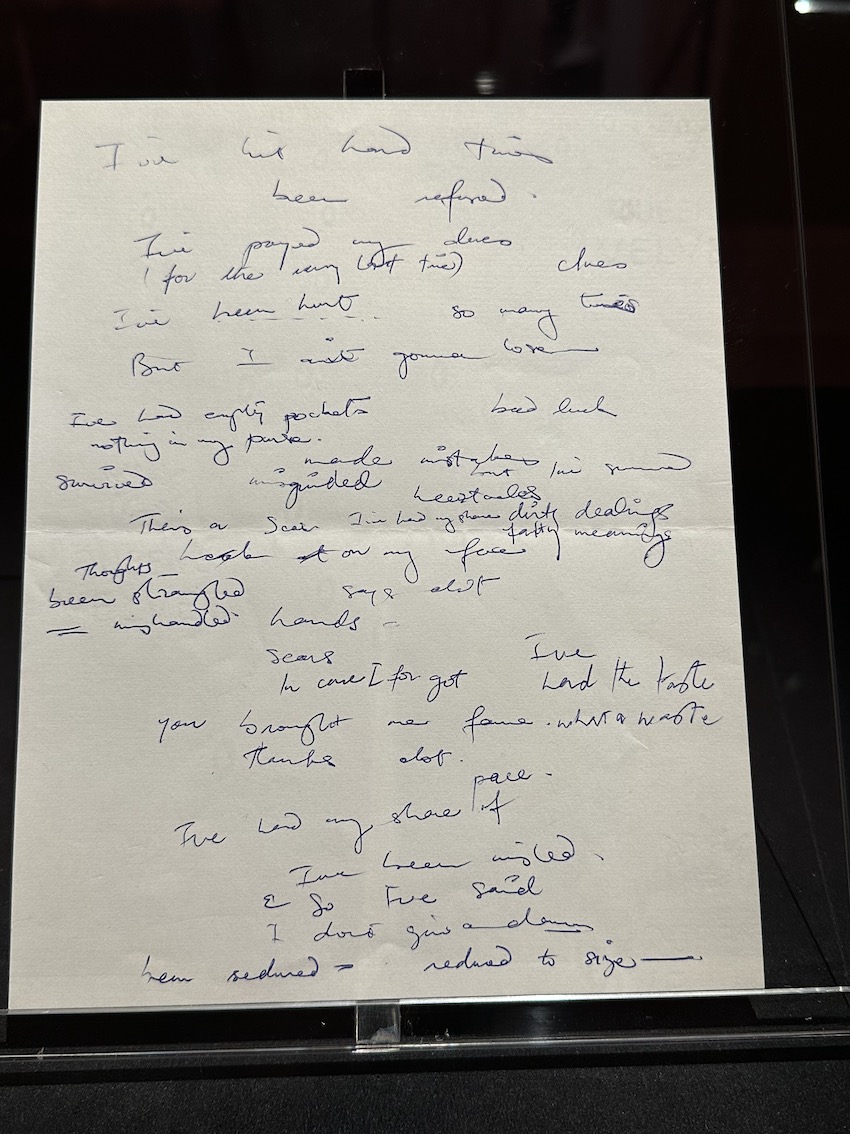 I've hit hard times
been refused.
I've payed my dues
(for the very last time) clues
I've been hurt so many times
But I ain't gonna lose
I've had empty pockets bad luck
nothing in my purse.
made mistakes but I've survived
survived misguided
There's a scar I've had my share dirty dealings
on my face meanings
Thoughts
been strangled says alot
mishandled hands
scars I've
In case I forgot had the taste
you brought me fame. what a waste
thanks alot.
pace.
I've had my share of
I've been misled.
& So I've said
I don't give a damn
been seduced = reduced to size